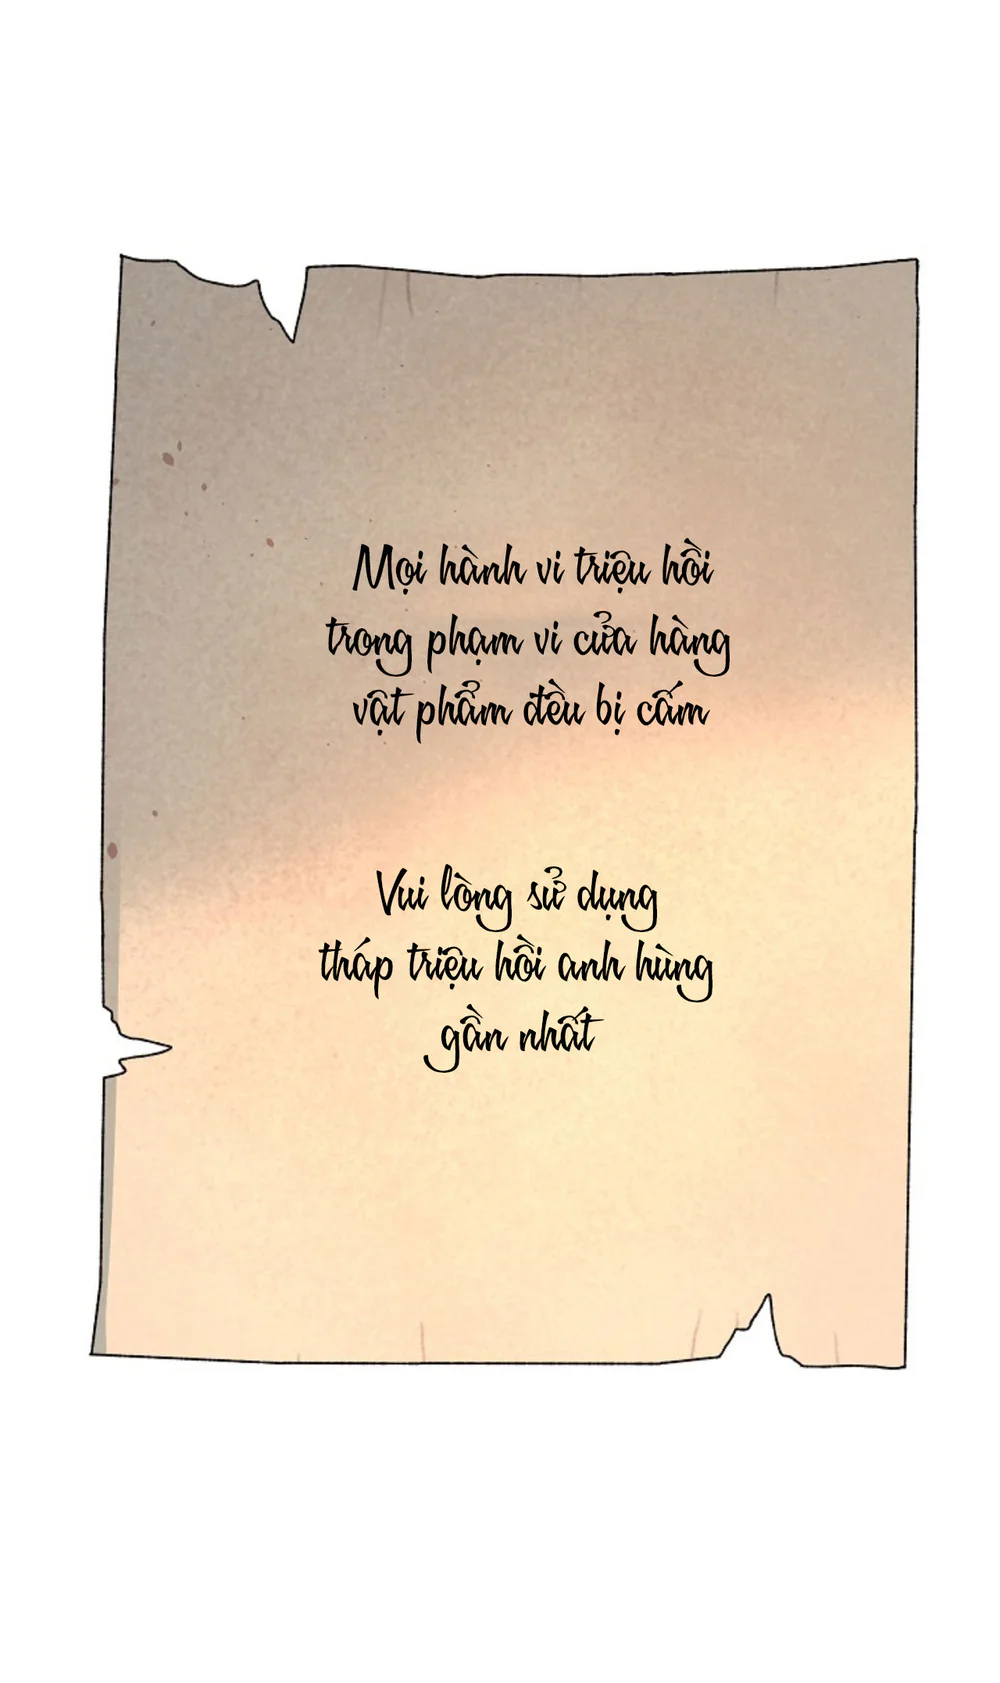 Mọi hành vi triệu hồi
trong phạm vi cửa hàng
vật phẩm đều bị cấm
Vui lòng sử dụng
tháp triệu hồi anh hùng
gần nhất